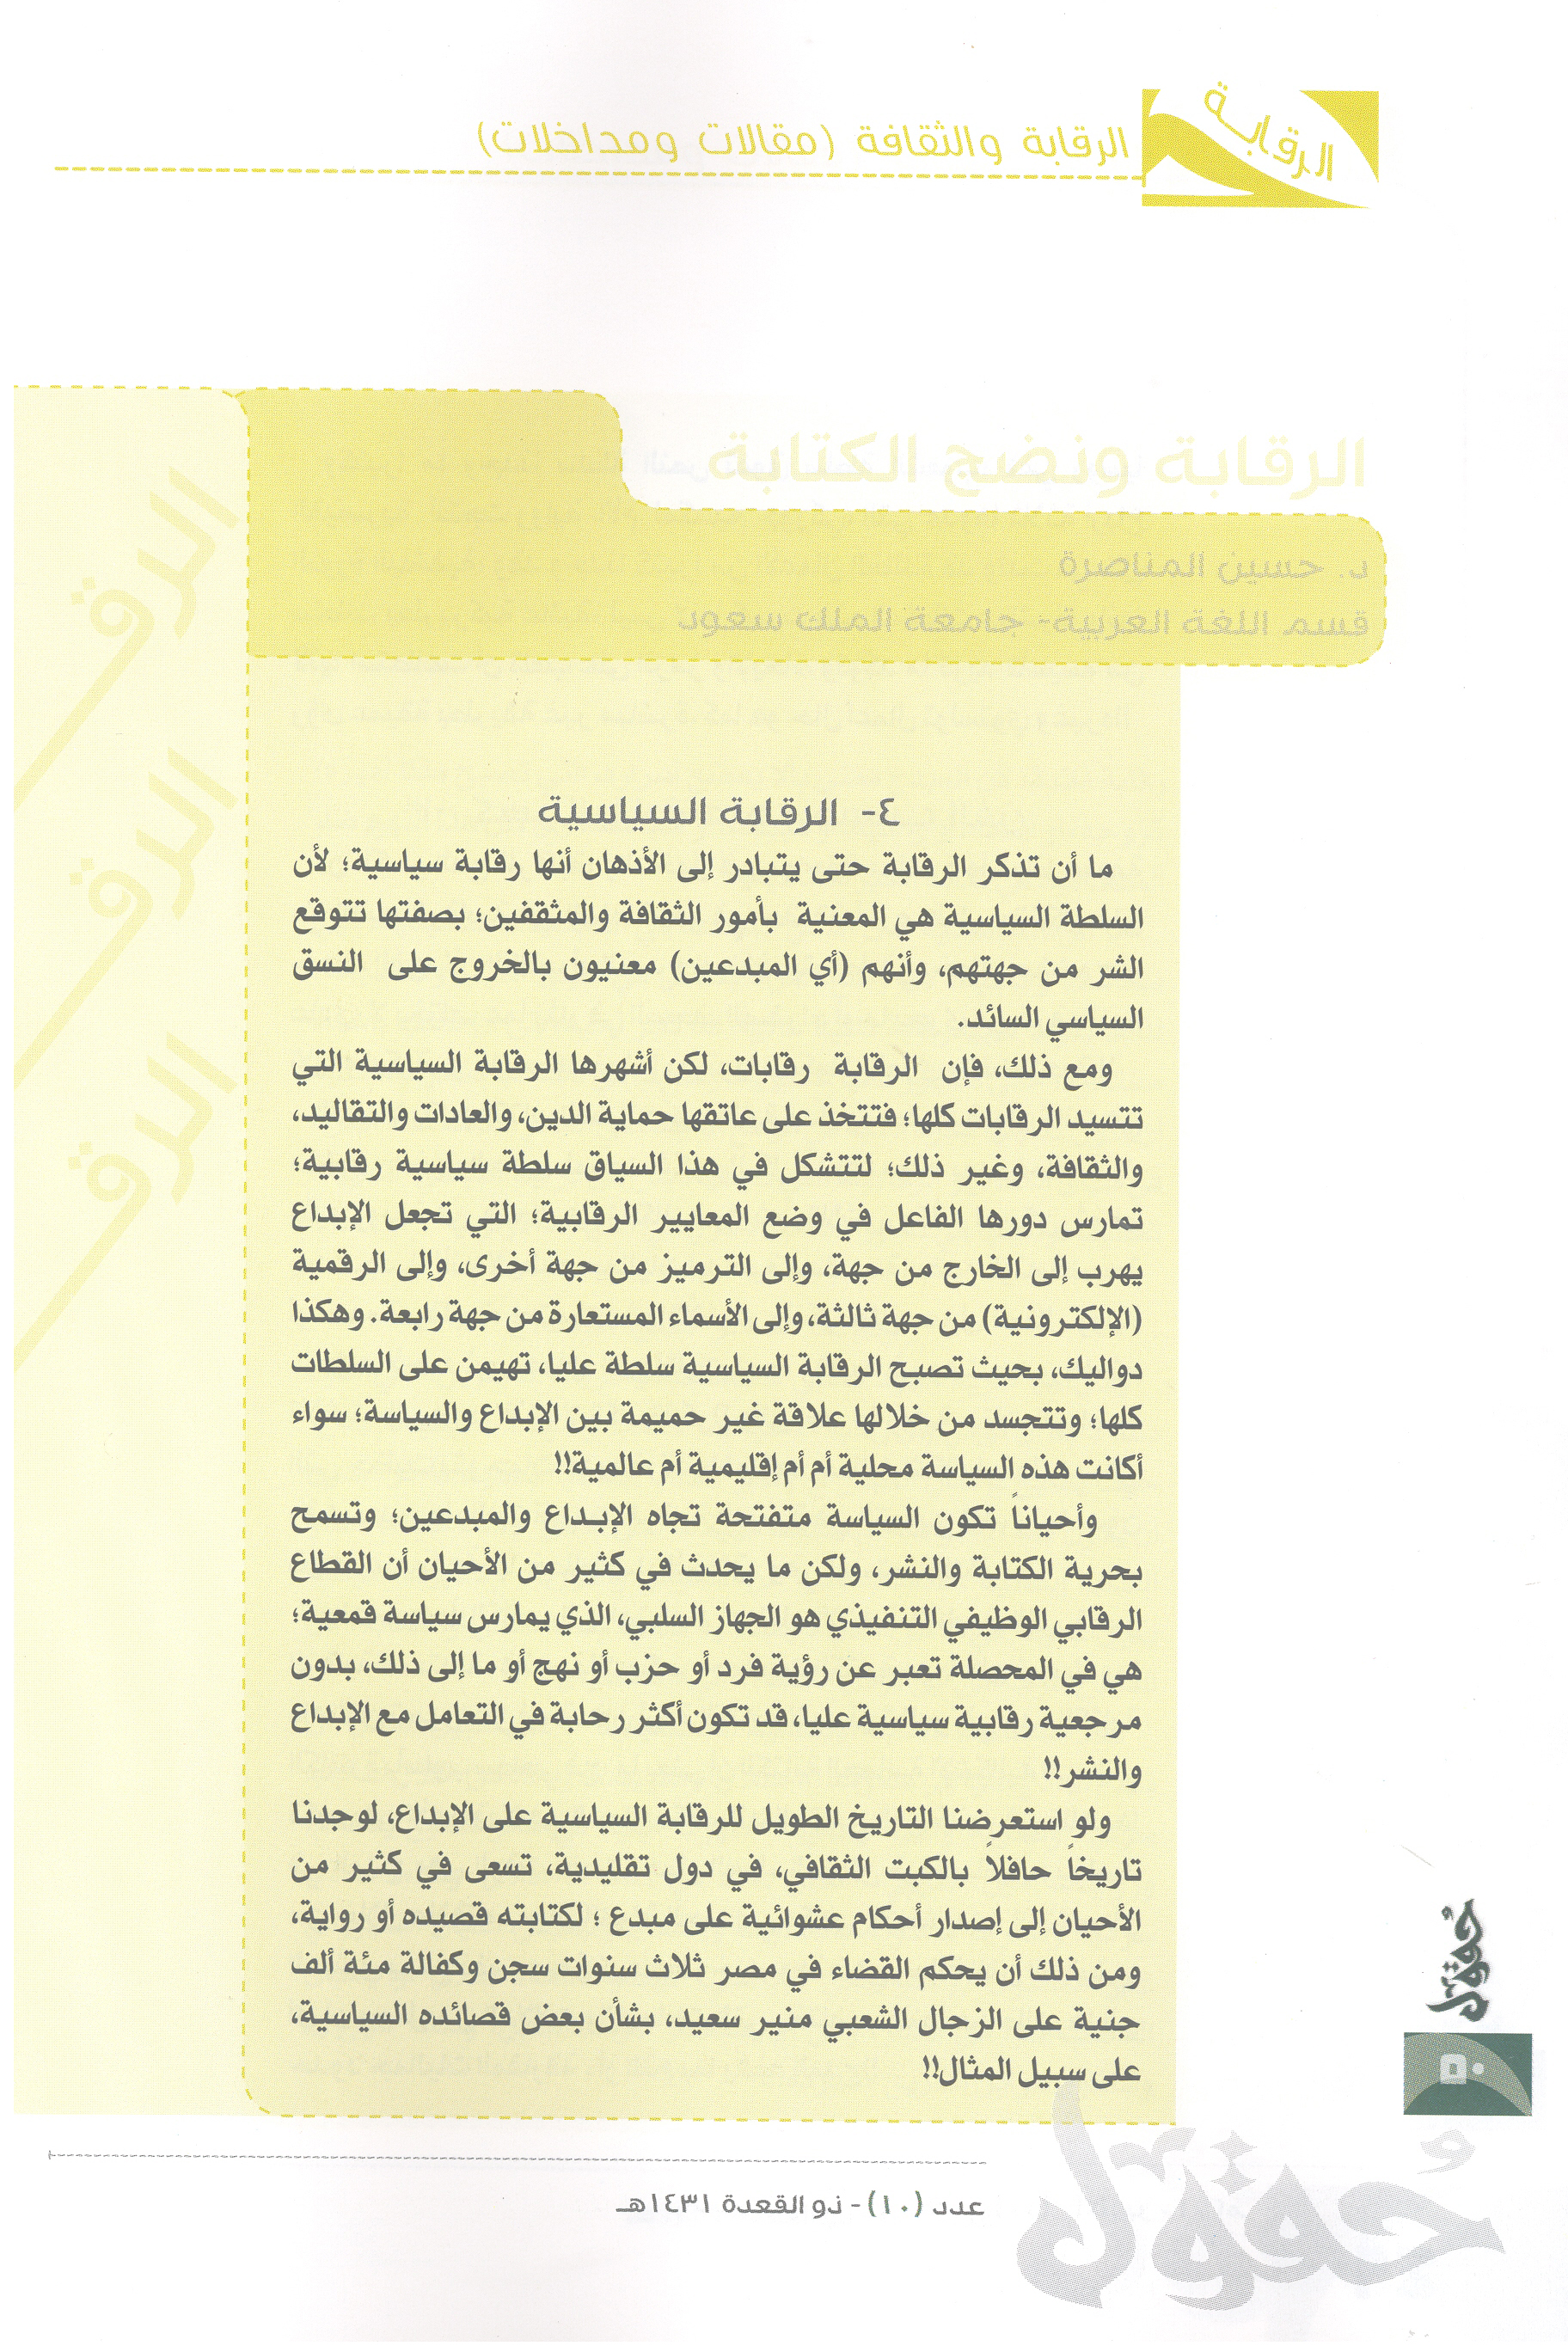 الرقابة
الرقابة والثقافة (مقالات ومداخلات)
الرقابة ونضج الكتابة
د. حسين المناصرة
قسم اللغة العربية- جامعة الملك سعود
الرقـ
الرقـ
الرقـ
٤- الرقابة السياسية
ما أن تذكر الرقابة حتى يتبادر إلى الأذهان أنها رقابة سياسية؛ لأن
السلطة السياسية هي المعنية بأمور الثقافة والمثقفين؛ بصفتها تتوقع
الشر من جهتهم، وأنهم (أي المبدعين) معنيون بالخروج على النسق
السياسي السائد.
ومع ذلك، فإن الرقابة رقابات، لكن أشهرها الرقابة السياسية التي
تتسيد الرقابات كلها؛ فتتخذ على عاتقها حماية الدين، والعادات والتقاليد،
والثقافة، وغير ذلك؛ لتتشكل في هذا السياق سلطة سياسية رقابية؛
تمارس دورها الفاعل في وضع المعايير الرقابية؛ التي تجعل الإبداع
يهرب إلى الخارج من جهة، وإلى الترميز من جهة أخرى، وإلى الرقمية
(الإلكترونية) من جهة ثالثة، وإلى الأسماء المستعارة من جهة رابعة. وهكذا
دواليك، بحيث تصبح الرقابة السياسية سلطة عليا، تهيمن على السلطات
كلها؛ وتتجسد من خلالها علاقة غير حميمة بين الإبداع والسياسة؛ سواء
أكانت هذه السياسة محلية أم أم إقليمية أم عالمية!!
وأحياناً تكون السياسة متفتحة تجاه الإبـداع والمبدعين؛ وتسمح
بحرية الكتابة والنشر، ولكن ما يحدث في كثير من الأحيان أن القطاع
الرقابي الوظيفي التنفيذي هو الجهاز السلبي، الذي يمارس سياسة قمعية؛
هي في المحصلة تعبر عن رؤية فرد أو حزب أو نهج أو ما إلى ذلك، بدون
مرجعية رقابية سياسية عليا، قد تكون أكثر رحابة في التعامل مع الإبداع
والنشر!!
ولو استعرضنا التاريخ الطويل للرقابة السياسية على الإبداع، لوجدنا
تاريخاً حافلاً بالكبت الثقافي، في دول تقليدية، تسعى في كثير من
الأحيان إلى إصدار أحكام عشوائية على مبدع ؛ لكتابته قصيده أو رواية،
ومن ذلك أن يحكم القضاء في مصر ثلاث سنوات سجن وكفالة مئة ألف
جنية على الزجال الشعبي منير سعيد، بشأن بعض قصائده السياسية،
على سبيل المثال!!
حقول
٥٠
عدد (١٠) - ذو القعدة ١٤٣١هـ
حقول